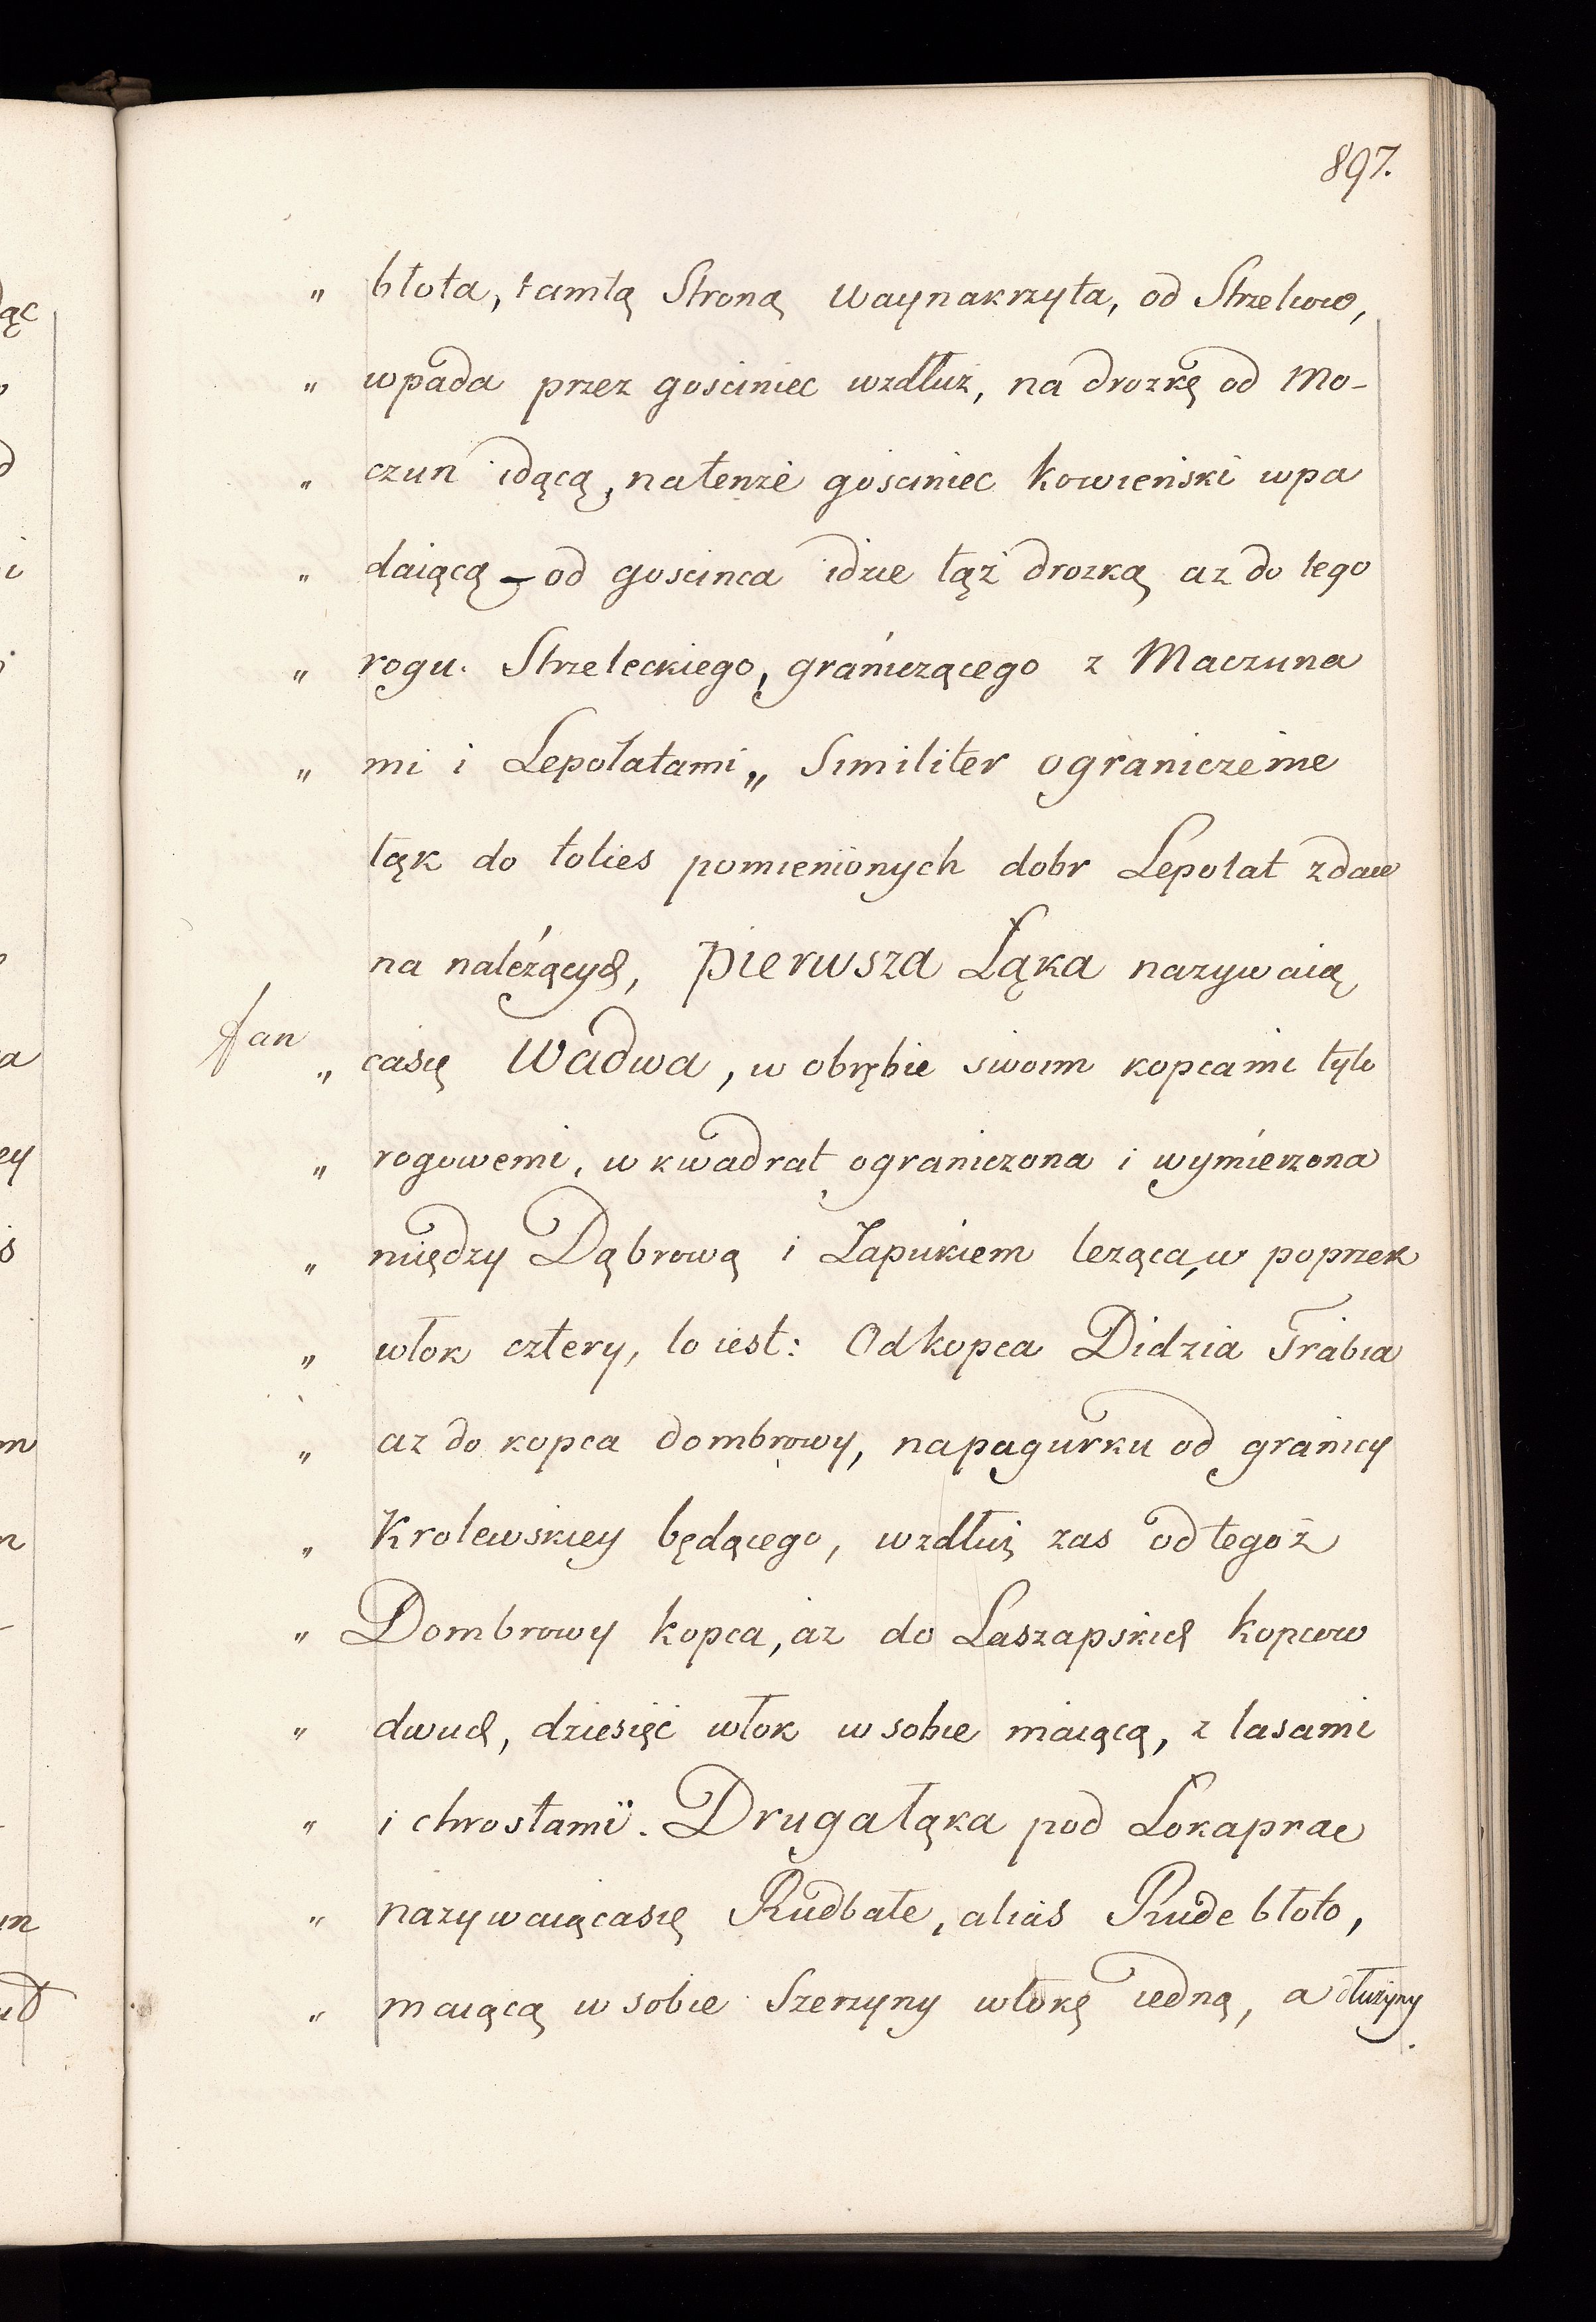 897.
„ błota, tamtą Stroną Waynakrzyta, od Strzelcow,
„ wpada przez gosciniec wzdłuż, na drożkę od Mo-
„ czun idącą, natenże gosciniec kowieński wpa
„ daiącą — od goscinca idzie tąż drożką aż do tego
„ rogu Strzeleckiego, graniczącego z Maczuna
„ mi i Lepołatami „ Similiter ograniczenie
łąk do toties pomienionych dobr Lepołat zdaw
na należących, Pierwsza Łąka nazywaią
„ casię Wadwa, w obrębie swoim kopcami tylo
„ rogowemi, w kwadrat ograniczona i wymierzona
„ między Dąbrową i Łapukiem leżąca, w poprzek
„ włok cztery, to iest: Od kopca Didzia Trabia
„ aż do kopca dombrowy, na pagurku od granicy
„ Krolewskiey będącego, wzdłuż zas od tegoż
„ Dombrowy kopca, aż do Laszapskich kopcow
„ dwuch, dziesięć włok w sobie maiącą, z lasami
„ i chrostami. Druga łąka pod Lokaprae
„ nazywaiącasię Rudbałe, alias Rude błoto,
„ maiącą w sobie Szerzyny włokę iedną, a dłużyny